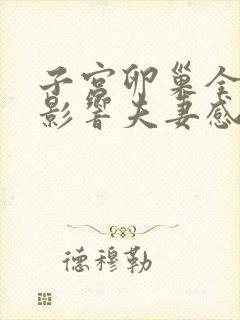 子宫卵巢全
影響夫妻感
德穆勒